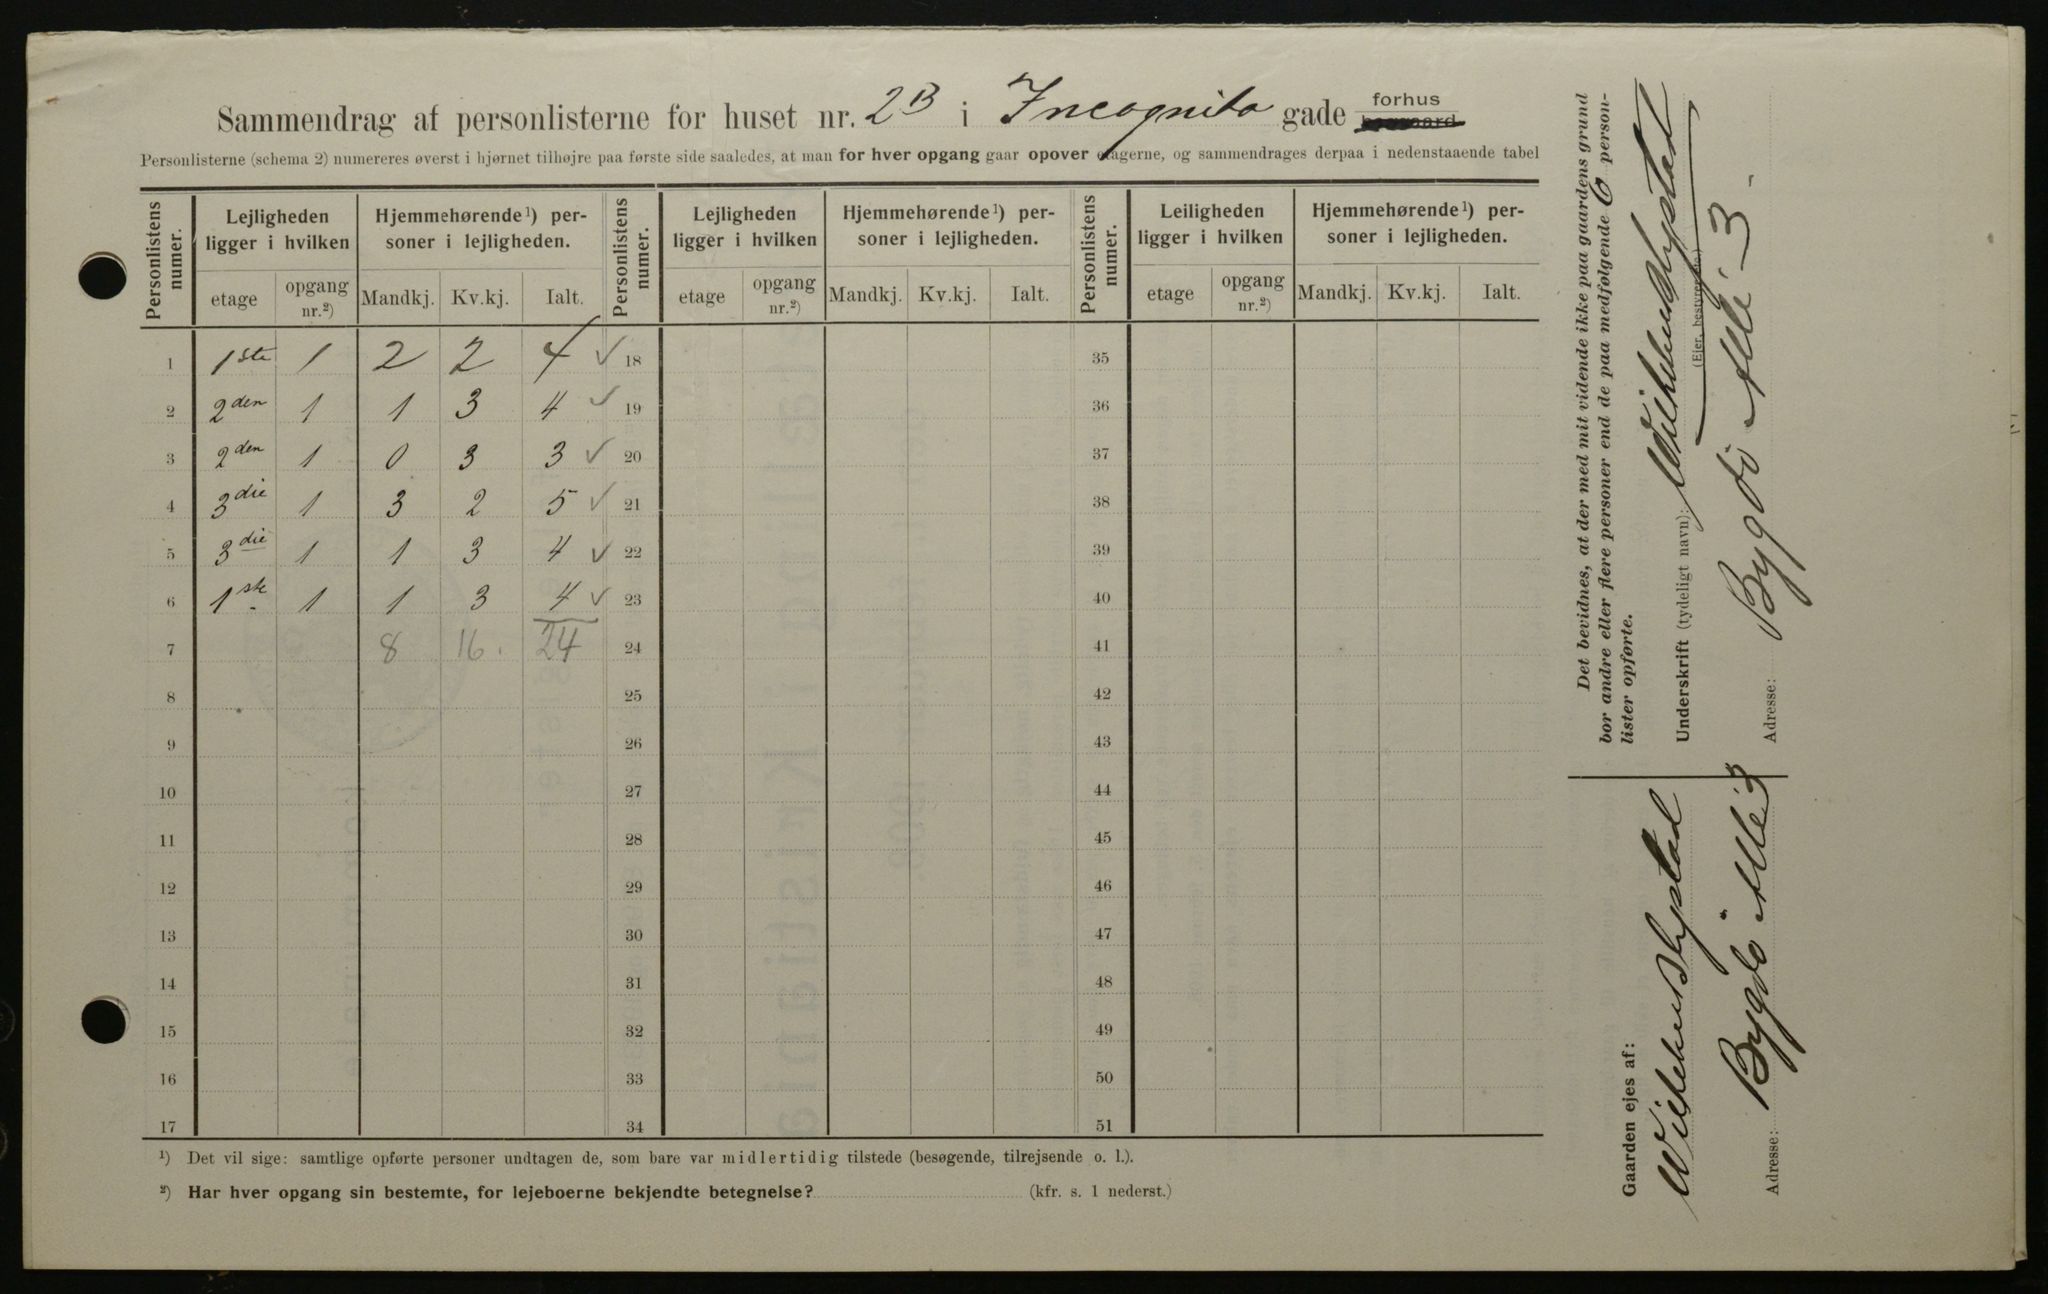 Sammendrag af personlisterne for huset nr. 2B i Incognito gade forhus
Personlisterne (schema 2) numereres øverst i hjørnet tilhøjre paa første side saaledes, at man for hver opgang gaar opover etagerne, og sammendrages derpaa i nedenstaaende tabel
Personlistens numer. Lejligheden ligger i hvilken Hjemmehørende ¹) personer i lejligheden. Personlistens numer. Lejligheden ligger i hvilken Hjemmehørende ¹) personer i lejligheden. Personlistens numer. Leiligheden ligger i hvilken Hjemmehørende ¹) personer i lejligheden.
etage opgang nr.²) Mandkj. Kv.kj. Ialt. etage opgang nr.²) Mandkj. Kv.kj. Ialt. etage opgang nr.²) Mandkj. Kv.kj. Ialt.
1 1ste 1 2 2 4 ✓ 18 35
2 2den 1 1 3 4 ✓ 19 36
3 2den 1 0 3 3 ✓ 20 37
4 3die 1 3 2 5 ✓ 21 38
5 3die 1 1 3 4 ✓ 22 39
6 1ste 1 1 3 4 ✓ 23 40
7 8 16. 24 24 41
8 25 42
9 26 43
10 27 44
11 28 45
12 29 46
13 30 47
14 31 48
15 32 49
16 33 50
17 34 51
¹) Det vil sige: samtlige opførte personer undtagen de, som bare var midlertidig tilstede (besøgende, tilrejsende o. l.).
²) Har hver opgang sin bestemte, for lejeboerne bekjendte betegnelse? (kfr. s. 1 nederst.)
Det bevidnes, at der med mit vidende ikke paa gaardens grund
bor andre eller flere personer end de paa medfølgende 6 person-
lister opførte.
Underskrift (tydeligt navn): Wilhelm Blystad
(Ejer, bestyrer etc.)
Adresse: Bygdö Allé 3
Gaarden ejes af:
Wilhelm Blystad
Adresse: Bygdö Allé 3